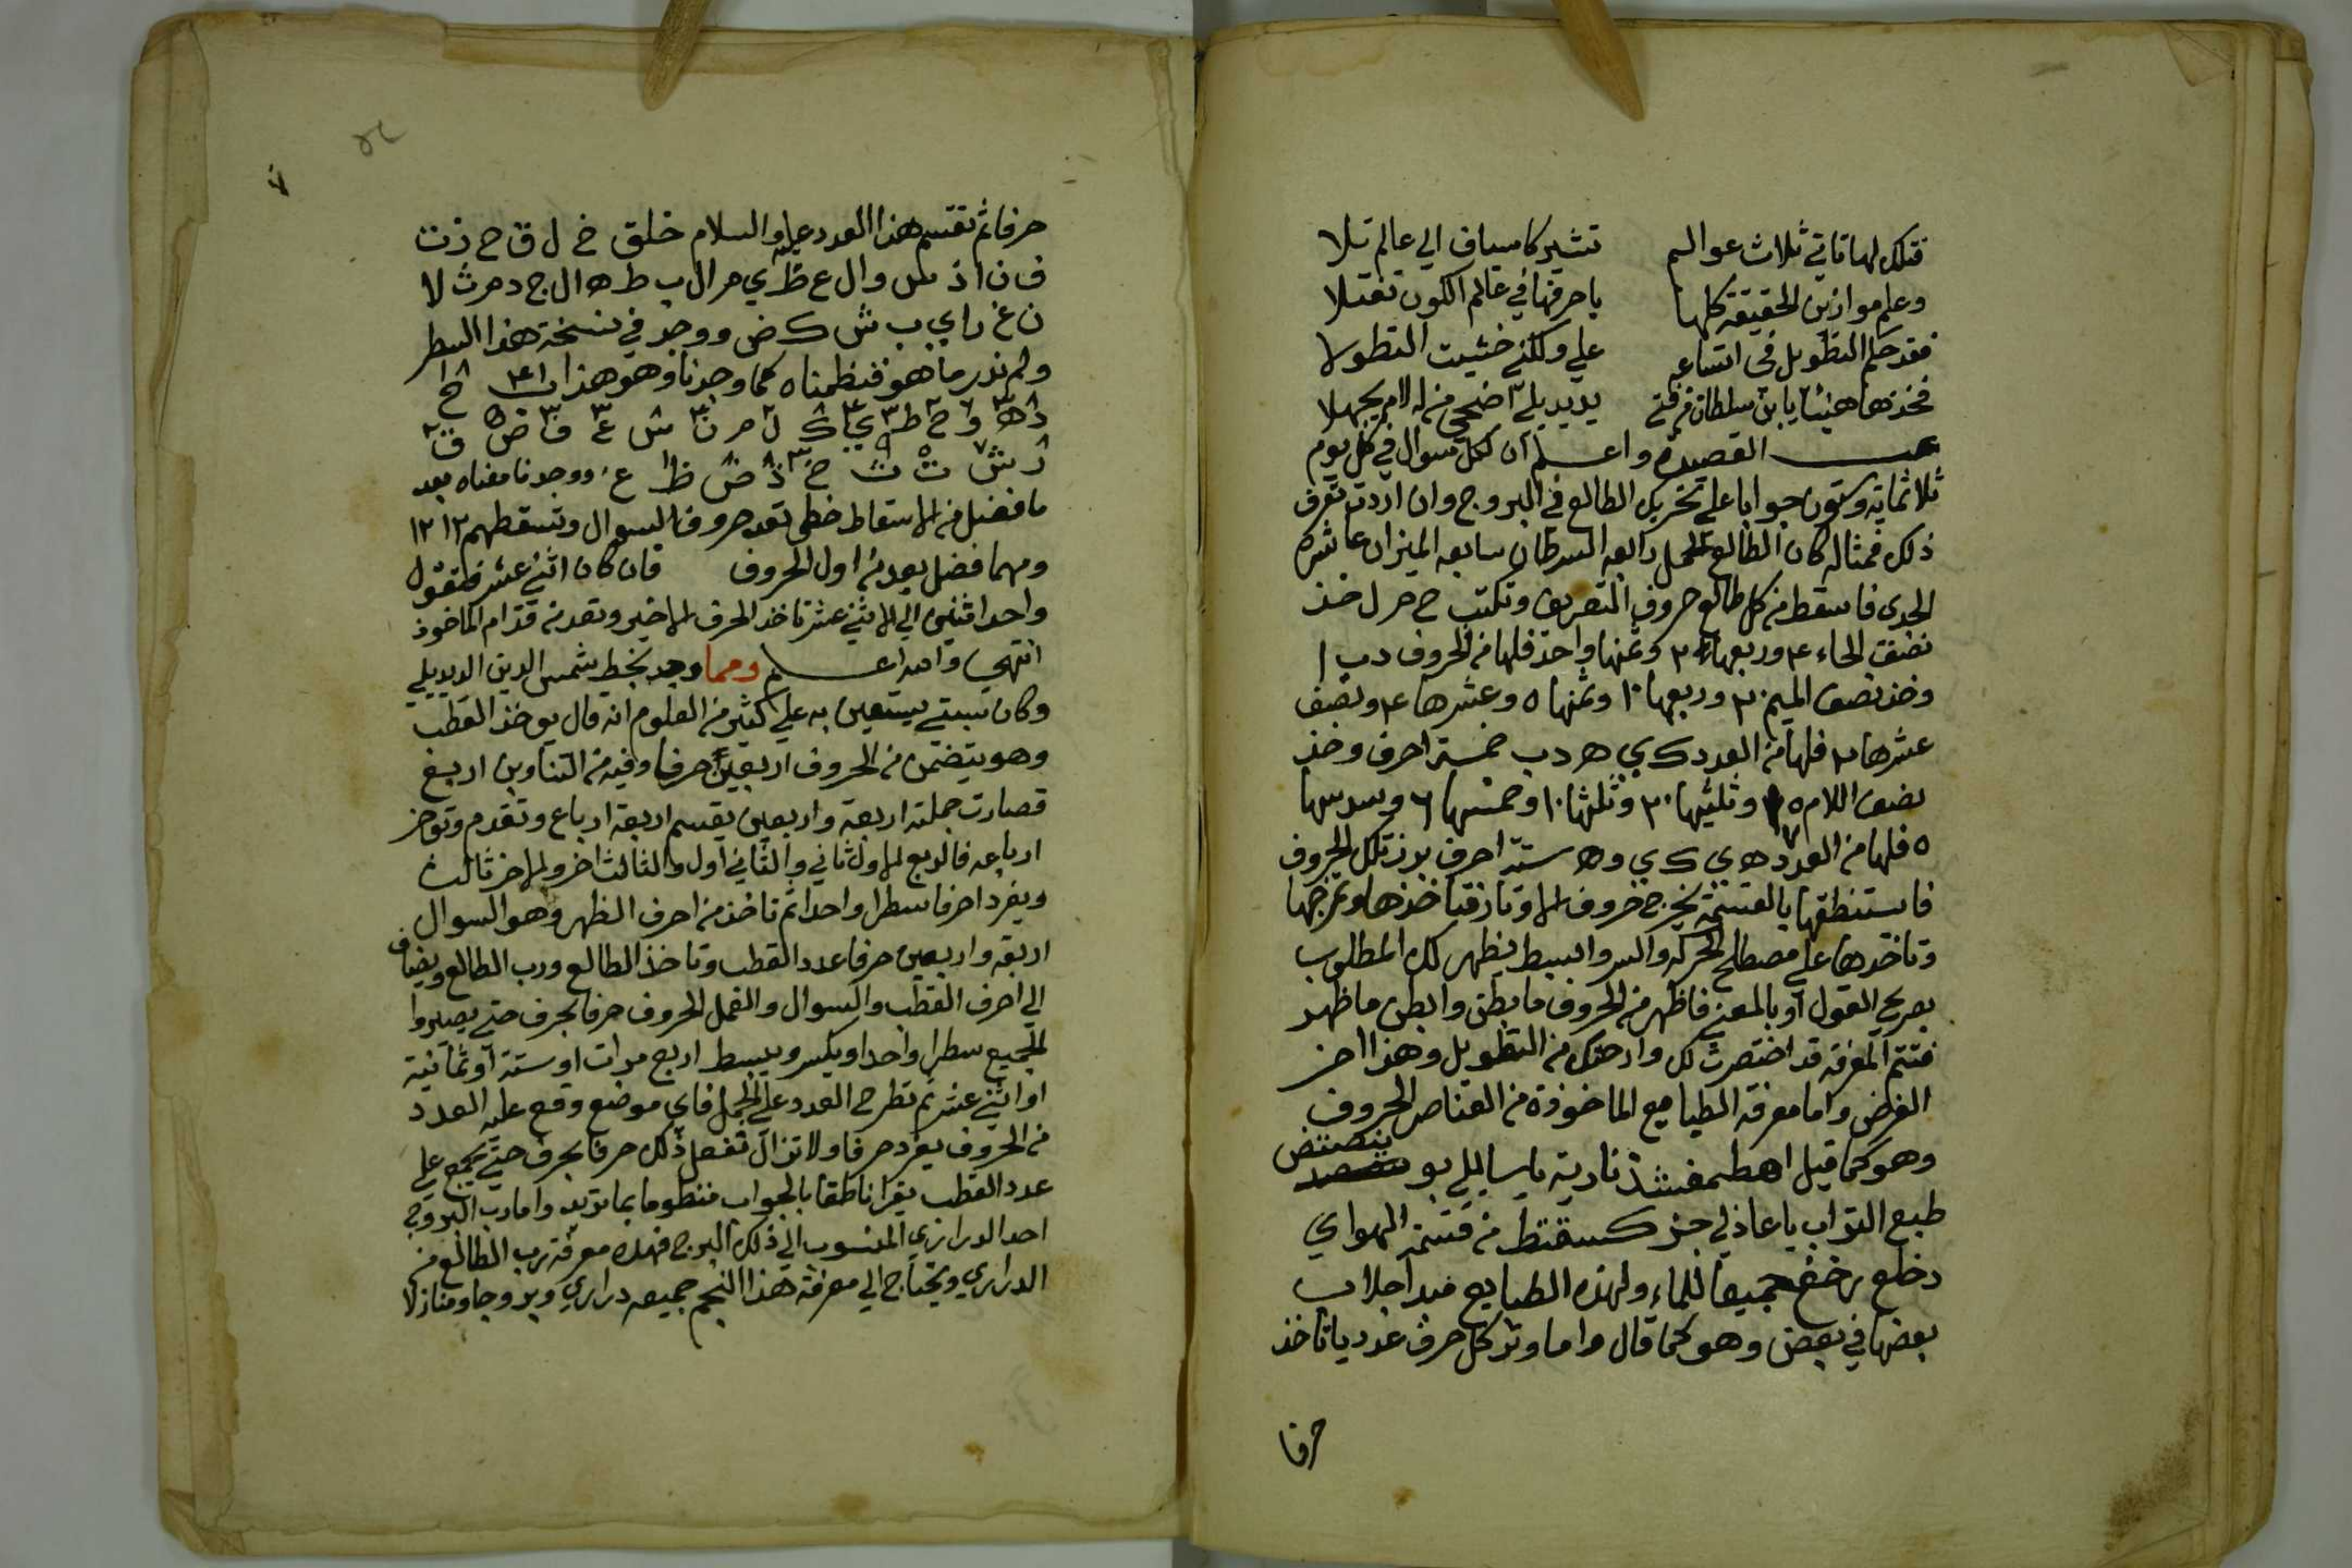 فتلك لها تاتي ثلاث عوالم تشير كاسياف الي عالم تلا
وعلم موازين الحقيقة كلها باحرفها في عالم الكون تفتلا
فقد حكم التطويل في اتساعه علي ولكني خشيت التطولا
فخذها هنيئا يابن سلطان من فتي يديديلي اضحي من له لام يجهلا
تمت القصيدة واعلم ان لكل سوال في كل يوم
ثلاثماية وستون جوابا علي تحريك الطالع في البروج وان اردت تعرف
ذلك فمثاله كان الطالع الحمل رابعه السرطان سابعه الميزان عاشره
الجدي فاسقط من كل طالع حروف التعريف وتكتب ح م ر ل خذ
نصف الحاء ٤ وربعها ٢ وثمنها واحد فلها من الحروف د ب ا
وخذ نصف الميم ٢٠ وربعها ١٠ وثمنها ٥ وعشرها ٤ ونصف
عشرها ٢ فلها من العدد ك ي ه د ب خمسة احرف وخذ
نصف اللام ١٥ وثلثيها ٢٠ وثلثها ١٠ وخمسها ٦ وسدسها
٥ فلها من العدد ه ي ك ي و ه ستة احرف برز تلك الحروف
فاستنطقها بالقسمة يخرج حروف الاوتار فتاخذها وتمزجها
وتاخذها علي مصطلح الحركة والسر والبسط يظهر لك المطلوب
بصريح القول او بالمعني فاظهر من الحروف ما بطن وابطن ما ظهر
فتتم المعرفة قد اختصرت لك وارحتك من التطويل وهذا اخر
الغرض واما معرفة الطبايع الماخوذة من العناصر الحروف
وهو كما قيل اهطمفشذ نارية يا سايلي بوينصتض
طبع التراب يا عاذلي جزكسقثظ من قسمة الهواي
دحلع رخغ جميعا للماء ولهذه الطبايع مبدا جلاب
بعضها في بعض وهو كما قال واما وتر كل حرف عدديا تاخذ
حرفا
حرفا ثم تقسم هذا العدد عليه والسلام خلق خ ل ق ح ز ت
ف ن ا ذ ... و ا ل ع ظ ي م ر ا ل ب ط ه ا ل ج د م ر ث لا
ن غ ر ا ي ب ش ك ض ووجد في نسخة هذا السطر
ولم ندر ما هو فنظمناه كما وجدناه وهو هذا
ووجدنا معناه بعد
ما فضل من الاسقاط خطي تعد حروف السوال وتسقطهم ١٢ ١٢
ومهما فضل بعد من اول الحروف فان كان اثني عشر فلتقول
واحد اثنين الي الاثني عشر تاخذ الحرف الاخير وتعد من قدام الماخوذ
انتهي والله اعلم ومما وجد بخط شمس الدين الديديلي
وكان سبتي يستعين به علي كثير من العلوم انه قال يوخذ القطب
وهو يتضمن من الحروف اربعين حرفا وفيه من التناوين اربع
فصارت جملته اربعة واربعين يقسم اربعة ارباع وتقدم وتوخر
ارباعه فالربع الاول ثاني والثاني اول والثالث اخر والاخر ثالث
ويفرد احرفا سطرا واحدا ثم تاخذ من احرف الظهر وهو السوال
اربعة واربعين حرفا عدد القطب وتاخذ الطالع ورب الطالع ويضاف
الي احرف القطب والسوال والفمل الحروف حرفا بحرف حتي يصيروا
الجميع سطرا واحدا ويكسر ويبسط اربع مرات او ستة او ثمانية
او اثني عشر ثم تطرح العدد علي الجمل فاي موضع وقع عليه العدد
من الحروف يفرد حرفا ولا تزال تفعل ذلك حرفا بحرف حتي يجمع علي
عدد القطب يقرا ناطقا بالجواب منظوما بما تريد واما رب البروج
احد الدراري المنسوب الي ذلك البرج فهذه معرفة رب الطالع من
الدراري ويحتاج الي معرفة هذا النجم جميعه دراري وبروجا ومنازلا